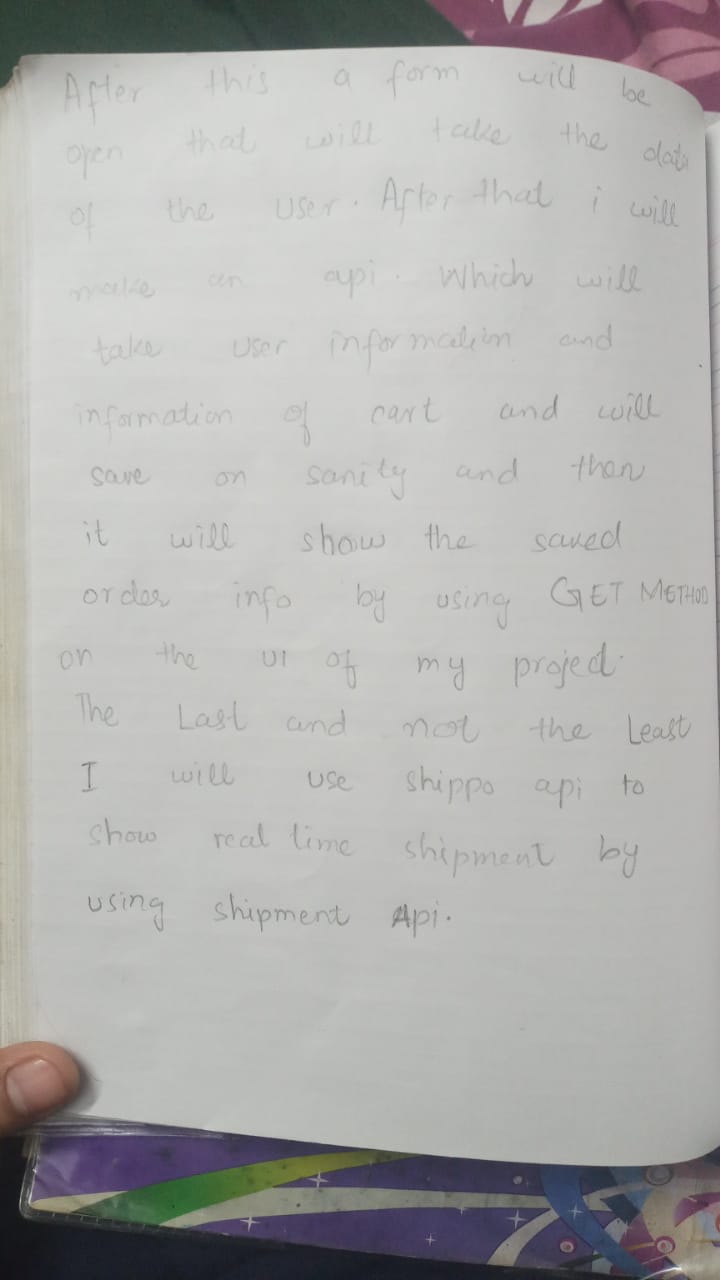 After this a form will be
open that will take the data
of the user. After that i will
make an api. Which will
take user information and
information of cart and will
save on sanity and then
it will show the saved
order info by using GET METHOD
on the UI of my project.
The Last and not the Least
I will use shippo api to
show real time shipment by
using shipment Api.